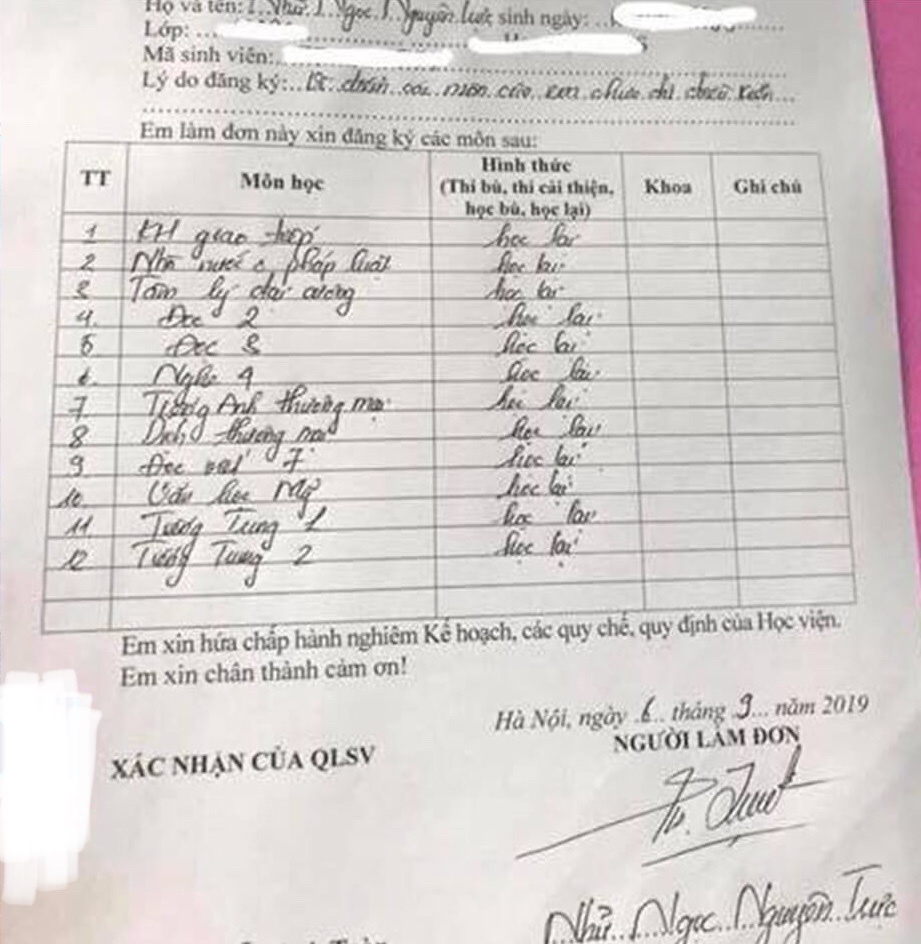 Họ và tên: Như Ngọc Nguyên Trực sinh ngày:
Lớp:
Mã sinh viên:
Lý do đăng ký: các môn em chưa
Em làm đơn này xin đăng ký các môn sau:
TT Môn học Hình thức (Thi bù, thi cải thiện, học bù, học lại) Khoa Ghi chú
1 KH giao tiếp học lại
2 Nhà nước & pháp luật học lại
3 Tâm lý đại cương học lại
4. Đọc 2 học lại
5 Đọc 3 học lại
6. Nghe 4 học lại
7 Tiếng Anh thương mại học lại
8 Dịch thương mại học lại
9 Đọc 7 học lại
10 Văn học Mỹ học lại
11 Tiếng Trung 1 học lại
12 Tiếng Trung 2 học lại
Em xin hứa chấp hành nghiêm Kế hoạch, các quy chế, quy định của Học viện.
Em xin chân thành cảm ơn!
Hà Nội, ngày 6 tháng 9 năm 2019
XÁC NHẬN CỦA QLSV NGƯỜI LÀM ĐƠN
Như Ngọc Nguyên Trực